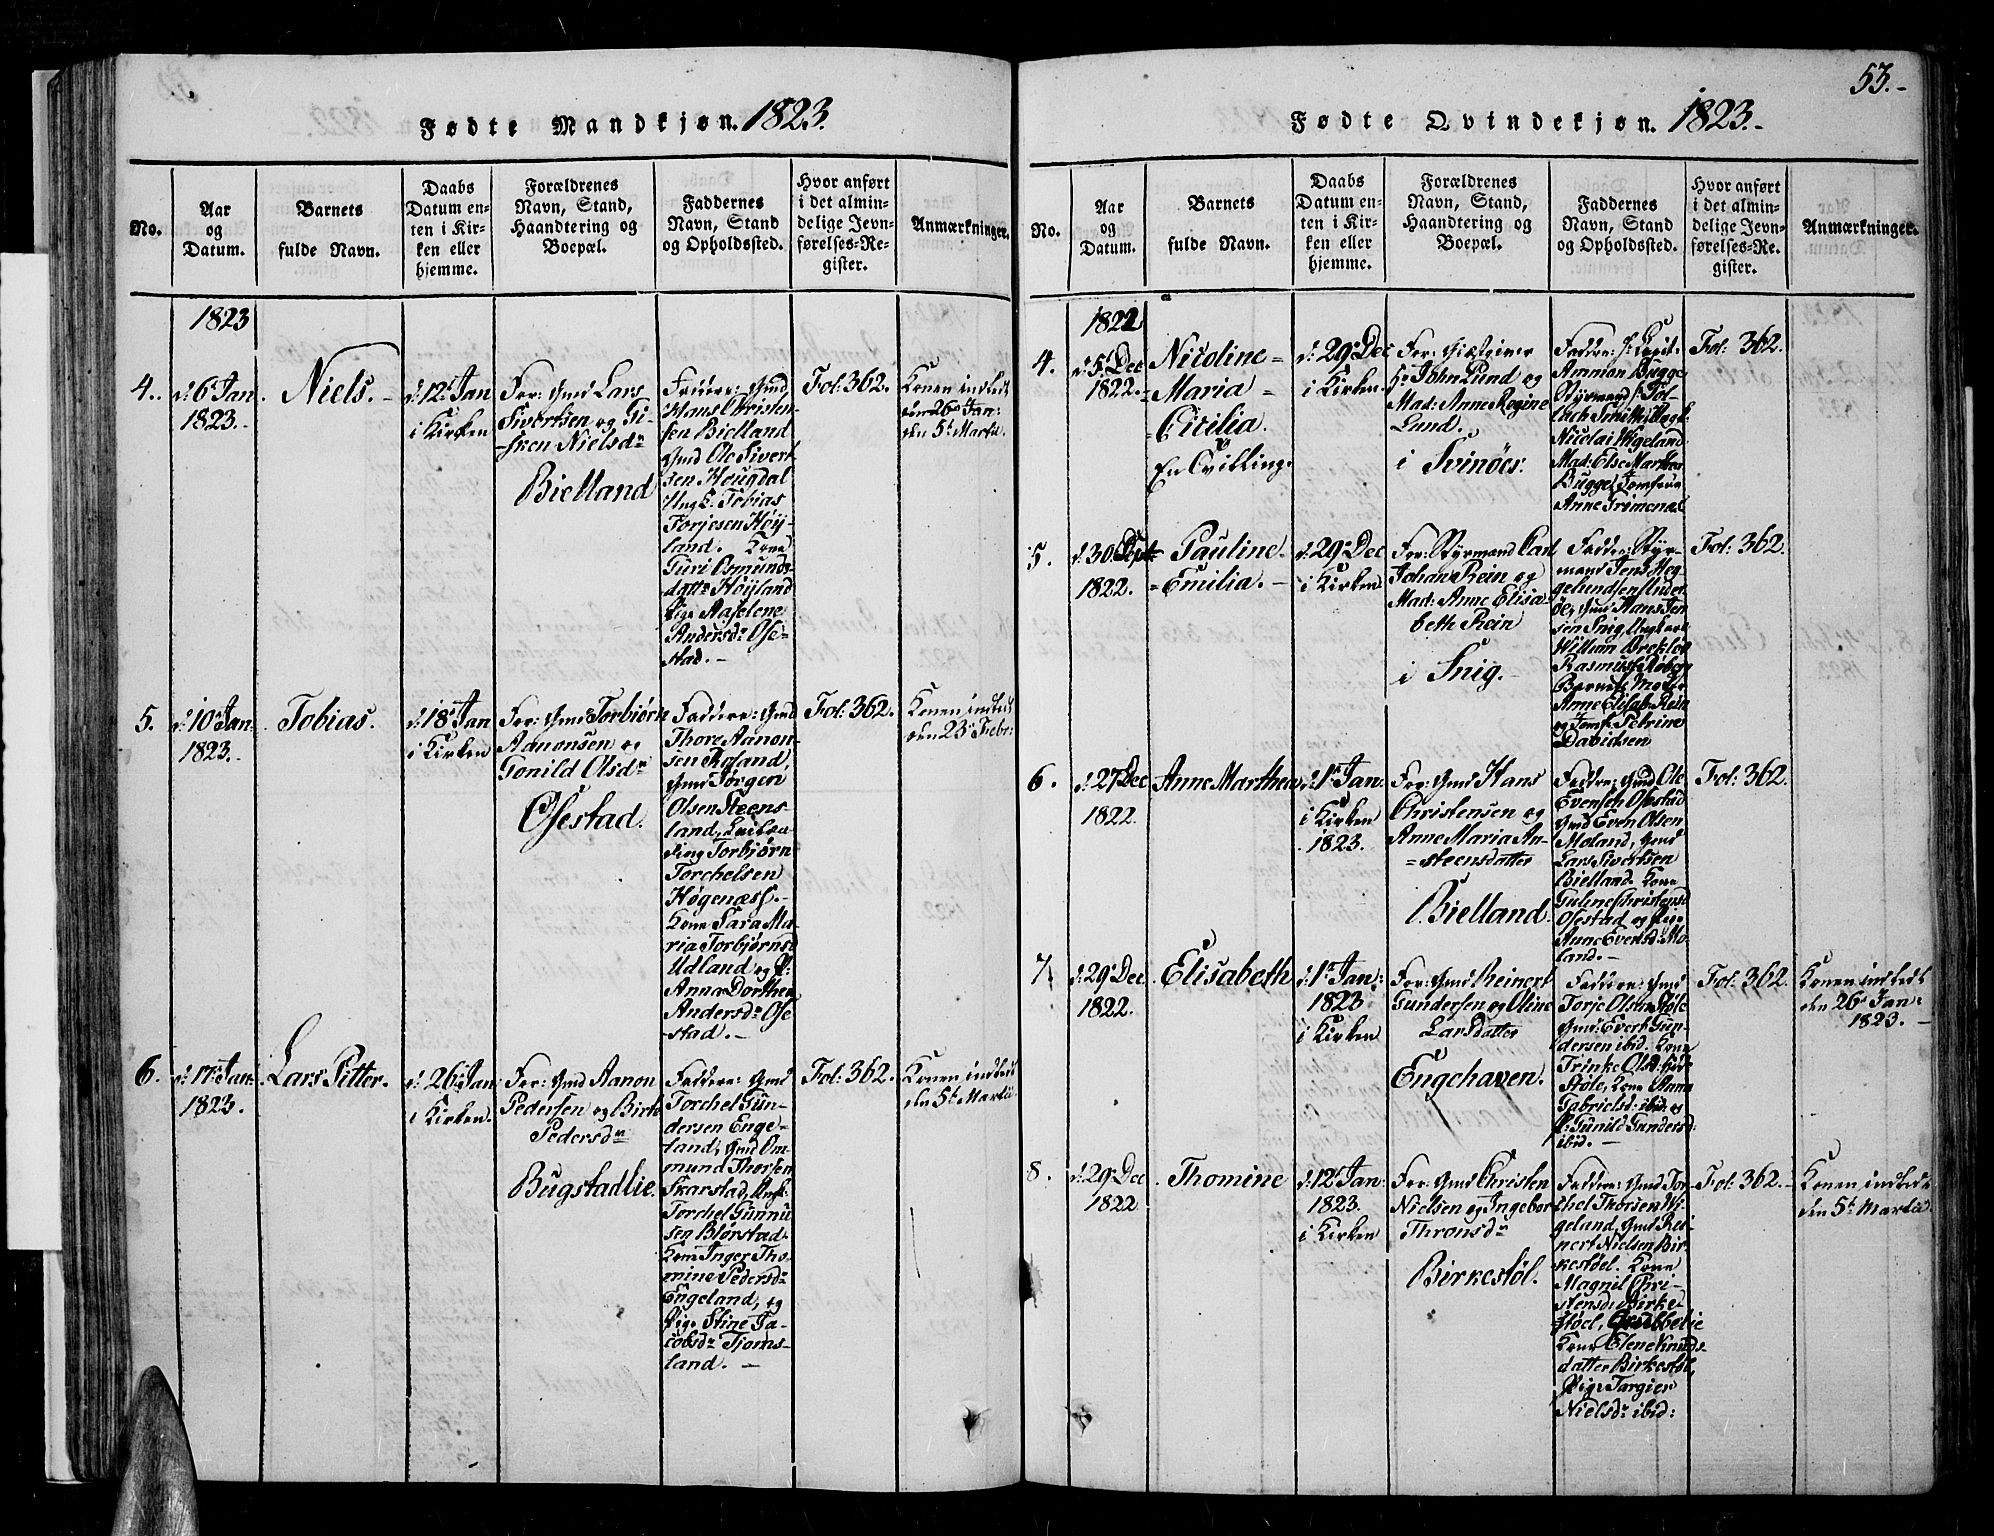 Fødte Mandkjøn. 1823.
No.
Aar
og
Datum.
Barnets
fulde Navn.
Daabs
Datum en-
ten i Kir-
ken eller
hjemme.
Forældrenes
Navn, Stand,
Haandtering og
Boepæl.
Faddernes
Navn, Stand
og Opholdssted.
Hvor anført
i det almin-
delige Jevn-
førelses-Re-
gister.
Anmærkninger.
1823
4.
d: 6t Jan
1823.
Niels.
d: 12t Jan
i Kirken
For: Gmd Lars
Sivertsen og Gi-
sken Nielsdr
Bielland
Faddere: Gmd
Hans Christen-
sen Bielland
Gmd Ole Sivert
sen Hougdal
Ungk. Tobias
Torjesen Høy-
land. Kone
Guri Osmunds-
dattr Høyland
Pige Aaselene
Andersdr Ose-
stad.
Fol: 362.
Konen indledt
den 26de Jan:
den 5t Martii.
5.
d: 10t Jan
1823.
Tobias.
d: 18t Jan
i Kirken
For: Gmd Torbiørn
Aanonsen og
Gonild Olsdr
Osestad.
Faddere: Gmd
Thore Aanon-
sen Røland,
Gmd Jørgen
Olsen Steens-
land,
Torbiørn
Torchelsen
Høgenæss.
Kone Sara Ma-
ria Torbjørnsd
Udland og P:
Anna Dorthea
Andersdr Ose
stad.
Fol: 362.
Konen indledt
den 23de Febr:
6.
d: 17t Jan:
1823.
Lars Pitter.
d: 26t Jan
i Kirken.
For: Gmd Aanon
Pedersen og Birte
Pedersdr
Bugstadlie.
Faddere: Gmd
Torchel Gun-
dersen Enge-
land, Gmd Om-
mund Thorsen
Skarstad, Ungk:
Torchel Gunnu
sen Blørstad.
Kone Inger Tho-
mine Pedersdr
Engeland, og
Pige Stine Ja-
cobsdr Tjoms-
land.
Fol: 362.
Konen indledt
den 5t Martii.
53.
Fødte Qvindekjøn. 1823.
No.
Aar
og
Datum.
Barnets
fulde Navn.
Daabs
Datum en-
ten i Kir-
ken eller
hjemme.
Forældrenes
Navn, Stand,
Haandtering og
Boepæl.
Faddernes
Navn, Stand
og Opholdssted.
Hvor anført
i det almin-
delige Jevn-
førelses-Re-
gister.
Anmærkninger.
1822
4.
d: 5t Dec
1822.
Nicoline
Maria
Cicilia.
En Tvilling.
d: 29de Dec
i Kirken.
For: Giæstgiver
Hr John Lund og
Mad: Anne Regine
Lund.
i Svinøer.
Faddre: Hr Capit:
Ammon Bugge
Styrmand
Nicolai Wigeland
Mad: Else Marthea
Bugge, Jomfrue
Anne Grimenæs
Fol: 362.
5.
d: 30 Sept
1822.
Pauline
Emilia.
d: 29de Dec
i Kirken
For: Styrmand Carl
Johan Rein og
Mad: Anne Elisa
beth Rein
i Snig.
Faddere: Styr-
mand Jens Heg-
gelundsen Under
øe, Gmd Hans Jen
sen Snig, Ungkarl
William
Rasmus
Barnets Moder
Anne Elisab: Rein
og Jomfr. Petrine
Davidsen
Fol: 362.
6.
d: 27 Dec
1822.
Anne Marthea
d: 1t Jan
i Kirken
1823.
For: Gmd Hans
Christensen og
Anne Maria An-
steensdatter
Bielland.
Faddere: Gmd Ole
Evensen Osestad
Gmd Even Olsen
Moland, Gmd
Lars Sivertsen
Bielland. Kone
Guline Christensd
Osestad og Pige
Anne Evensd: Mo-
land.
Fol: 362.
7.
d: 29de Dec
1822.
Elisabeth
d: 1t Jan:
1823
i Kirken
For: Gmd Reinert
Gundersen og Oline
Larsdatter
Engehaven.
Faddere: Gmd
Torje Olsen Støle
Gmd: Evert Gun-
dersen ibid. Kone
Trinke Olsd:
Støle, Kone Anna
Gabrielsd: ibid. og
P: Gunild Gundersd:
ibid.
Fol: 362.
Konen indledt
den 26de Jan:
1823.
8.
d: 29de Dec
1822
Thomine
d: 12t Jan:
1823.
i Kirken
For: Gmd Christen
Nielsen og Ingebor
Thronsdr
Birkestøl.
Faddere: Gmd Tor-
chel Thorsen Wi-
geland, Gmd Rei-
nert Nielsen Bir-
kestøel. Kone
Magnil Chri-
stensdr Birke-
støel,
Kone Elene Knuds-
datter Birkestøl,
Pige Targier
Nielsdr ibid:
Fol: 362.
Konen indledt
den 5t Martii.